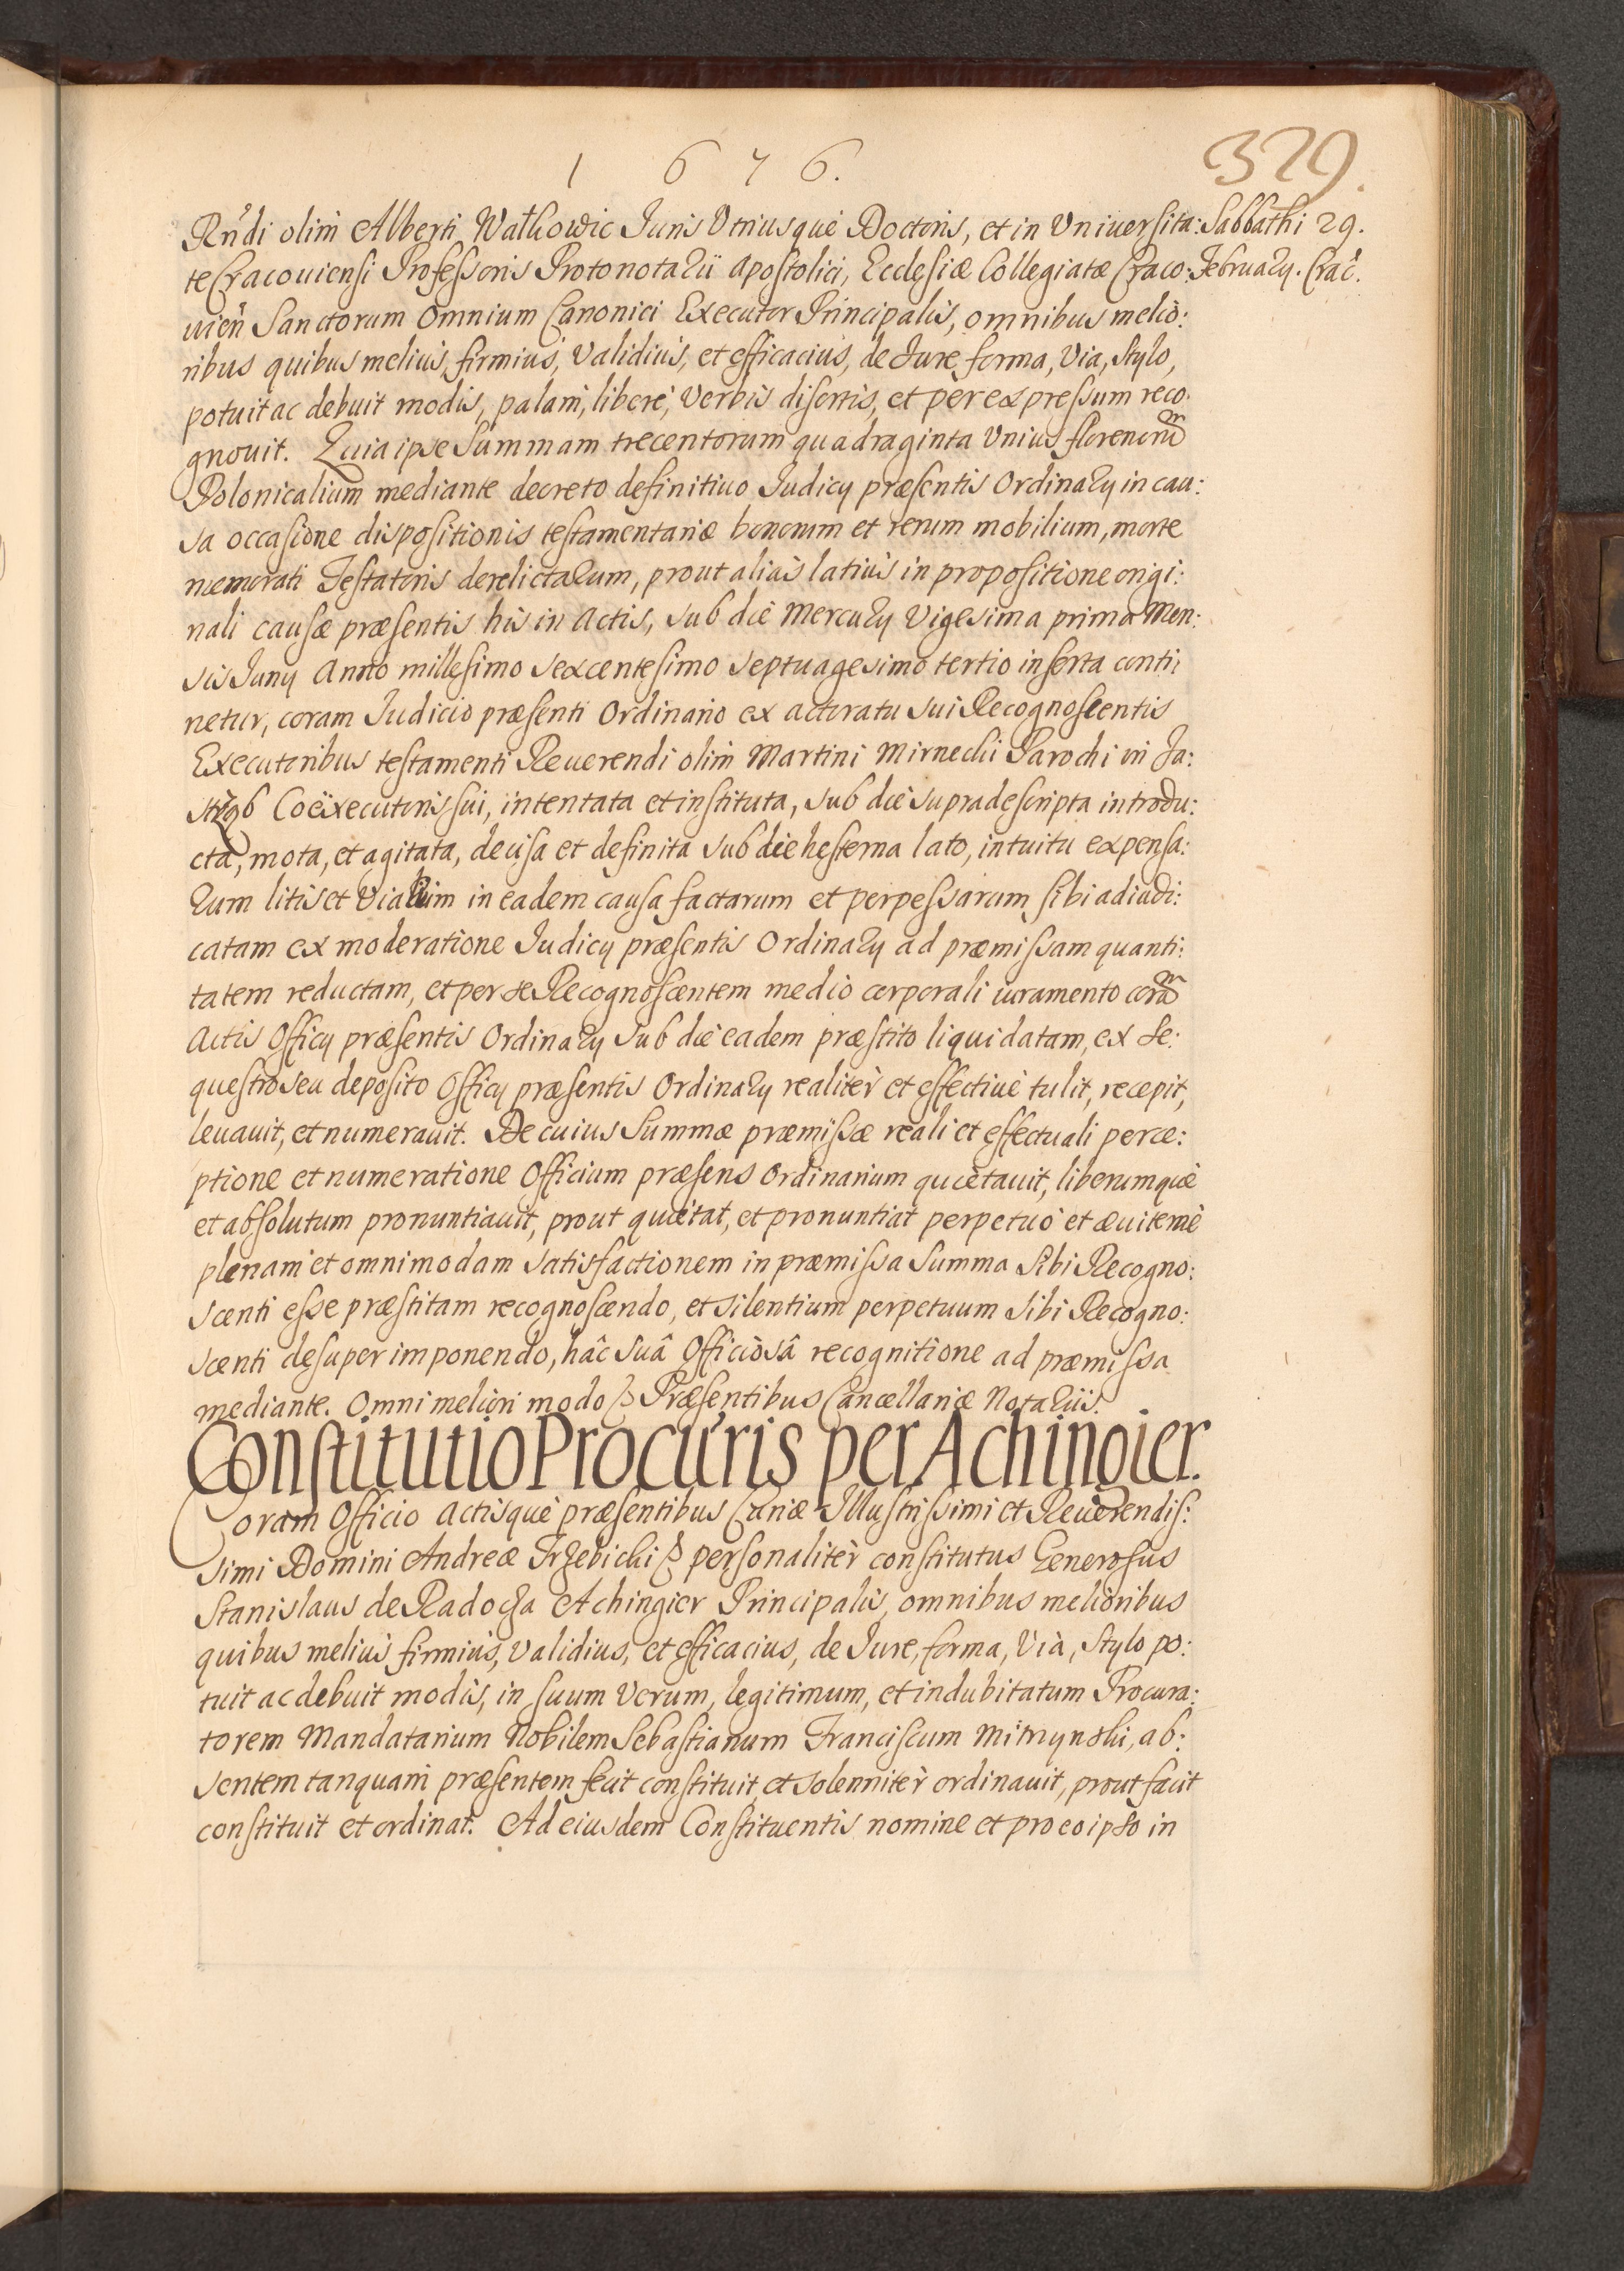 1676.
329.
Rńdi olim Alberti Wathowic Juris Utriusquè Doctoris, et in Vniversita:
Sabbathi 29.
te Cracouiensi Professoris Protonotarii Apostolici, Ecclesiæ Collegiatæ Craco:
February. Crac̃.
uien̄ Sanctorum Omnium Canonici Executor Principalis, omnibus melio:
ribus quibus melius, firmius, validius, et efficacius, de Jure, forma, Via, Stylo,
potuit ac debuit modis, palam, liberè, verbis disertis, et per expressum reco:
gnouit. Quia ipse Summam trecentorum quadraginta Unius florenorū
Polonicalium mediante decreto definitiuo Judicy præsentis Ordinary in cau:
sa occasione dispositionis testamentariæ bonorum et rerum mobilium, morte
memorati Testatoris derelictarum, prout aliàs latiùs in propositione origi:
nali causæ præsentis his in Actis, sub die Mercury Vigesima prima Men:
sis Juny Anno millesimo sexcentesimo septuagesimo tertio inserta conti:
netur, coram Judicio præsenti Ordinario ex actoratu sui Recognoscentis
Executoribus testamenti Reuerendi olim Martini Mirnechi Parochi in Ja:
Coëxecutoris sui, intentata et instituta, sub die supradescripta introdu:
cta, mota, et agitata, decisa et definita sub die hesterna lato, intuitu expensa:
rum litis et vialium in eadem causa factarum et perpessarum sibi adiudi:
catam ex moderatione Judicy præsentis Ordinary ad præmissam quanti:
tatem reductam, et per se Recognoscentem medio corporali iuramento corā
Actis Officy præsentis Ordinary sub die eadem præstito liquidatam, ex se:
questro seu deposito Officy præsentis Ordinary realitèr et effectiuè tulit, recepit,
leuauit, et numerauit. De cuius Summæ præmissæ reali et effectuali perce:
ptione et numeratione Officium præsens Ordinarium quietauit, liberumquè
et absolutum pronuntiauit, prout quietat, et pronuntiat perpetuò et æuiternè
plenam et omnimodam satisfactionem in præmissa Summa Sibi Recogno:
scenti esse præstitam recognoscendo, et silentium perpetuum sibi Recogno:
scenti desuper imponendo, hâc suâ Officiosâ recognitione ad præmissa
mediante. Omni meliori modo & Præsentibus Cancellariæ Notariis.
Constitutio Procuris per Achingier.
Coram Officio Actisquè præsentibus Curiæ Illustrissimi et Reuerendis:
simi Domini Andreæ Trzebicki & personalitèr constitutus Generosus
Stanislaus de Radocza Achingier Principalis, omnibus melioribus
quibus melius firmius, validius, et efficacius, de Jure, forma, Via, Stylo po:
tuit ac debuit modis, in suum Verum, legitimum, et indubitatum Procura:
torem Mandatarium Nobilem Sebastianum Franciscum ab:
sentem tanquam præsentem fecit constituit et solennitèr ordinauit, prout facit
constituit et ordinat. Ad eiusdem Constituentis nomine et pro eo ipso in